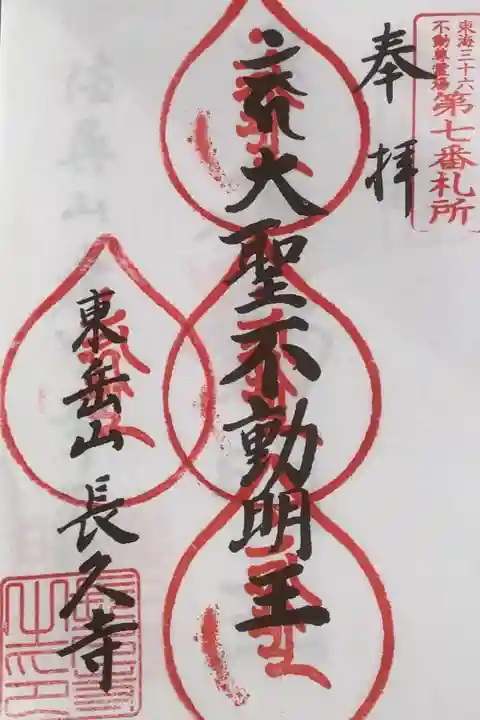 東海三十六
不動尊霊場
第七番札所
奉拝
大聖不動明王
東岳山 長久寺